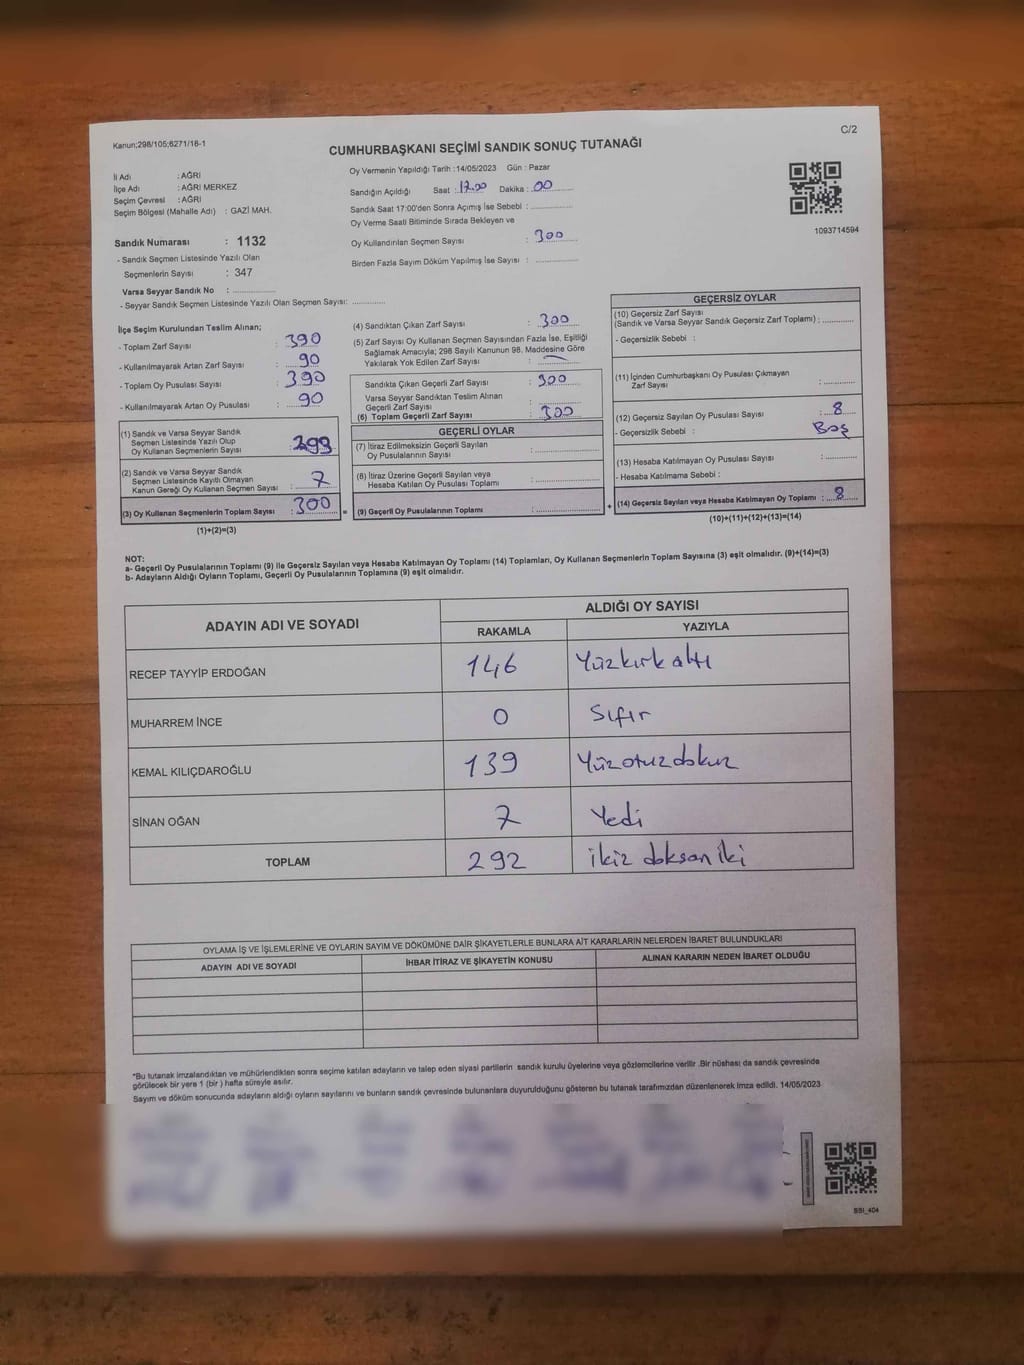 Kanun;298/105;6271/16-1
C/2
CUMHURBAŞKANI SEÇİMİ SANDIK SONUÇ TUTANAĞI
İl Adı : AĞRI
İlçe Adı : AĞRI MERKEZ
Seçim Çevresi : AĞRI
Seçim Bölgesi (Mahalle Adı) : GAZİ MAH.
Sandık Numarası : 1132
- Sandık Seçmen Listesinde Yazılı Olan
Seçmenlerin Sayısı : 347
Varsa Seyyar Sandık No : ..................
- Seyyar Sandık Seçmen Listesinde Yazılı Olan Seçmen Sayısı: ..............
Oy Vermenin Yapıldığı Tarih :14/05/2023 Gün : Pazar
Sandığın Açıldığı Saat : 17.00 Dakika : 00
Sandık Saat 17:00'den Sonra Açımış İse Sebebi : ..............
Oy Verme Saati Bitiminde Sırada Bekleyen ve
Oy Kullandırılan Seçmen Sayısı : 300
Birden Fazla Sayım Döküm Yapılmış İse Sayısı : ..............
1093714594
İlçe Seçim Kurulundan Teslim Alınan;
- Toplam Zarf Sayısı : 390
- Kullanılmayarak Artan Zarf Sayısı : 90
- Toplam Oy Pusulası Sayısı : 390
- Kullanılmayarak Artan Oy Pusulası : 90
(1) Sandık ve Varsa Seyyar Sandık
Seçmen Listesinde Yazılı Olup
Oy Kullanan Seçmenlerin Sayısı : 299
(2) Sandık ve Varsa Seyyar Sandık
Seçmen Listesinde Kayıtlı Olmayan
Kanun Gereği Oy Kullanan Seçmen Sayısı : 7
(3) Oy Kullanan Seçmenlerin Toplam Sayısı : 300
(1)+(2)=(3)
=
(4) Sandıktan Çıkan Zarf Sayısı : 300
(5) Zarf Sayısı Oy Kullanan Seçmen Sayısından Fazla İse, Eşitliği
Sağlamak Amacıyla; 298 Sayılı Kanunun 98. Maddesine Göre
Yakılarak Yok Edilen Zarf Sayısı : —
Sandıkta Çıkan Geçerli Zarf Sayısı : 300
Varsa Seyyar Sandıktan Teslim Alınan
Geçerli Zarf Sayısı : ..............
(6) Toplam Geçerli Zarf Sayısı : 300
GEÇERLİ OYLAR
(7) İtiraz Edilmeksizin Geçerli Sayılan
Oy Pusulalarının Sayısı : ..............
(8) İtiraz Üzerine Geçerli Sayılan veya
Hesaba Katılan Oy Pusulası Toplamı : ..............
(9) Geçerli Oy Pusulalarının Toplamı : ..............
+
GEÇERSİZ OYLAR
(10) Geçersiz Zarf Sayısı
(Sandık ve Varsa Seyyar Sandık Geçersiz Zarf Toplamı) : ............
- Geçersizlik Sebebi :
(11) İçinden Cumhurbaşkanı Oy Pusulası Çıkmayan
Zarf Sayısı : ............
(12) Geçersiz Sayılan Oy Pusulası Sayısı : 8
- Geçersizlik Sebebi : Boş
(13) Hesaba Katılmayan Oy Pusulası Sayısı : ............
- Hesaba Katılmama Sebebi :
(14) Geçersiz Sayılan veya Hesaba Katılmayan Oy Toplamı : 8
(10)+(11)+(12)+(13)=(14)
NOT:
a- Geçerli Oy Pusulalarının Toplamı (9) ile Geçersiz Sayılan veya Hesaba Katılmayan Oy Toplamı (14) Toplamları, Oy Kullanan Seçmenlerin Toplam Sayısına (3) eşit olmalıdır. (9)+(14)=(3)
b- Adayların Aldığı Oyların Toplamı, Geçerli Oy Pusulalarının Toplamına (9) eşit olmalıdır.
ADAYIN ADI VE SOYADI
ALDIĞI OY SAYISI
RAKAMLA YAZIYLA
RECEP TAYYİP ERDOĞAN 146 Yüzkırkaltı
MUHARREM İNCE 0 Sıfır
KEMAL KILIÇDAROĞLU 139 Yüzotuzdokuz
SİNAN OĞAN 7 Yedi
TOPLAM 292 ikiz doksan iki
OYLAMA İŞ VE İŞLEMLERİNE VE OYLARIN SAYIM VE DÖKÜMÜNE DAİR ŞİKAYETLERLE BUNLARA AİT KARARLARIN NELERDEN İBARET BULUNDUKLARI
ADAYIN ADI VE SOYADI İHBAR İTİRAZ VE ŞİKAYETİN KONUSU ALINAN KARARIN NEDEN İBARET OLDUĞU
*Bu tutanak imzalandıktan ve mühürlendikten sonra seçime katılan adayların ve talep eden siyasi partilerin sandık kurulu üyelerine veya gözlemcilerine verilir .Bir nüshası da sandık çevresinde
görülecek bir yere 1 (bir ) hafta süreyle asılır.
Sayım ve döküm sonucunda adayların aldığı oyların sayılarını ve bunların sandık çevresinde bulunanlara duyurulduğunu gösteren bu tutanak tarafımızdan düzenlenerek imza edildi. 14/05/2023
SSI_404